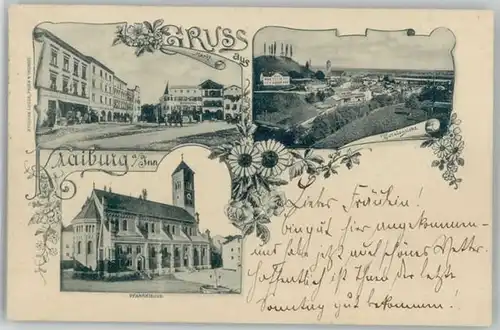 GRUSS
aus
Kraiburg a/Inn
Totalansicht
Pfarrkirche
Liebes Fräulein!
bin gut hier angekommen
und habe jetzt auch schönes Wetter.
Hoffentlich ist Ihnen der letzte
Sonntag gut bekommen!